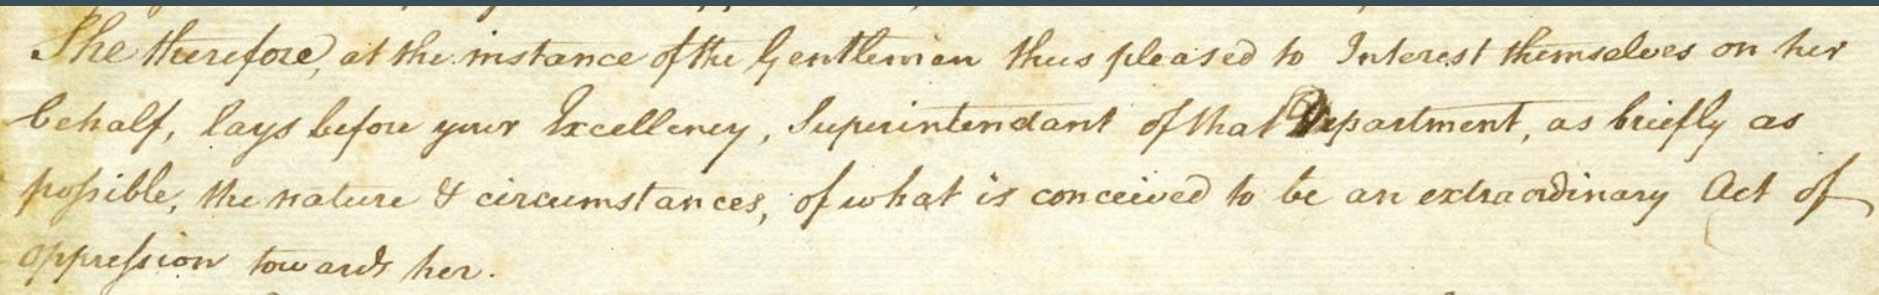 She therefore, at the instance of the Gentlemen thus pleased to Interest themselves on her
behalf, lays before your Excellency, Superintendant of that Department, as briefly as
poſsible, the nature & circumstances, of what is conceived to be an extraordinary Act of
oppreſsion towards her.